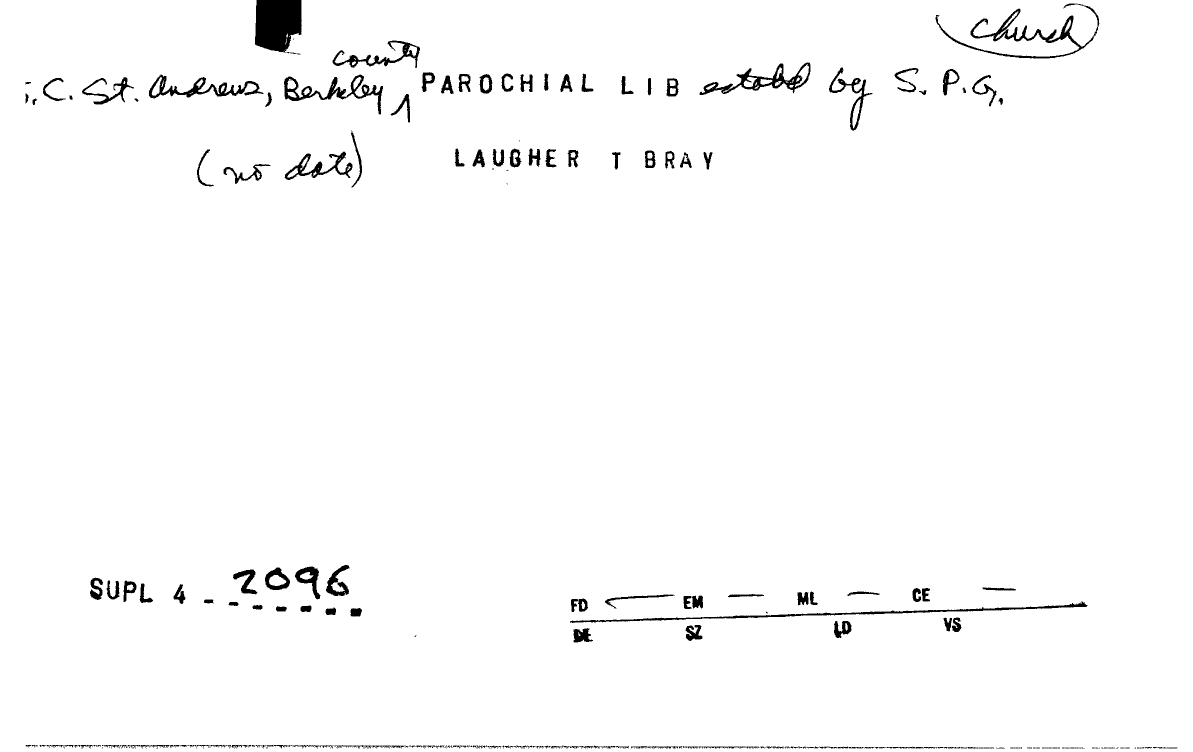 Church
county
;.C. St. Andrews, Berkeley ^ PAROCHIAL LIB estabd by S. P. G.
(no date) LAUGHER T BRAY
SUPL 4 - 2096
FD — EM — ML — CE —
DE SZ LD VS